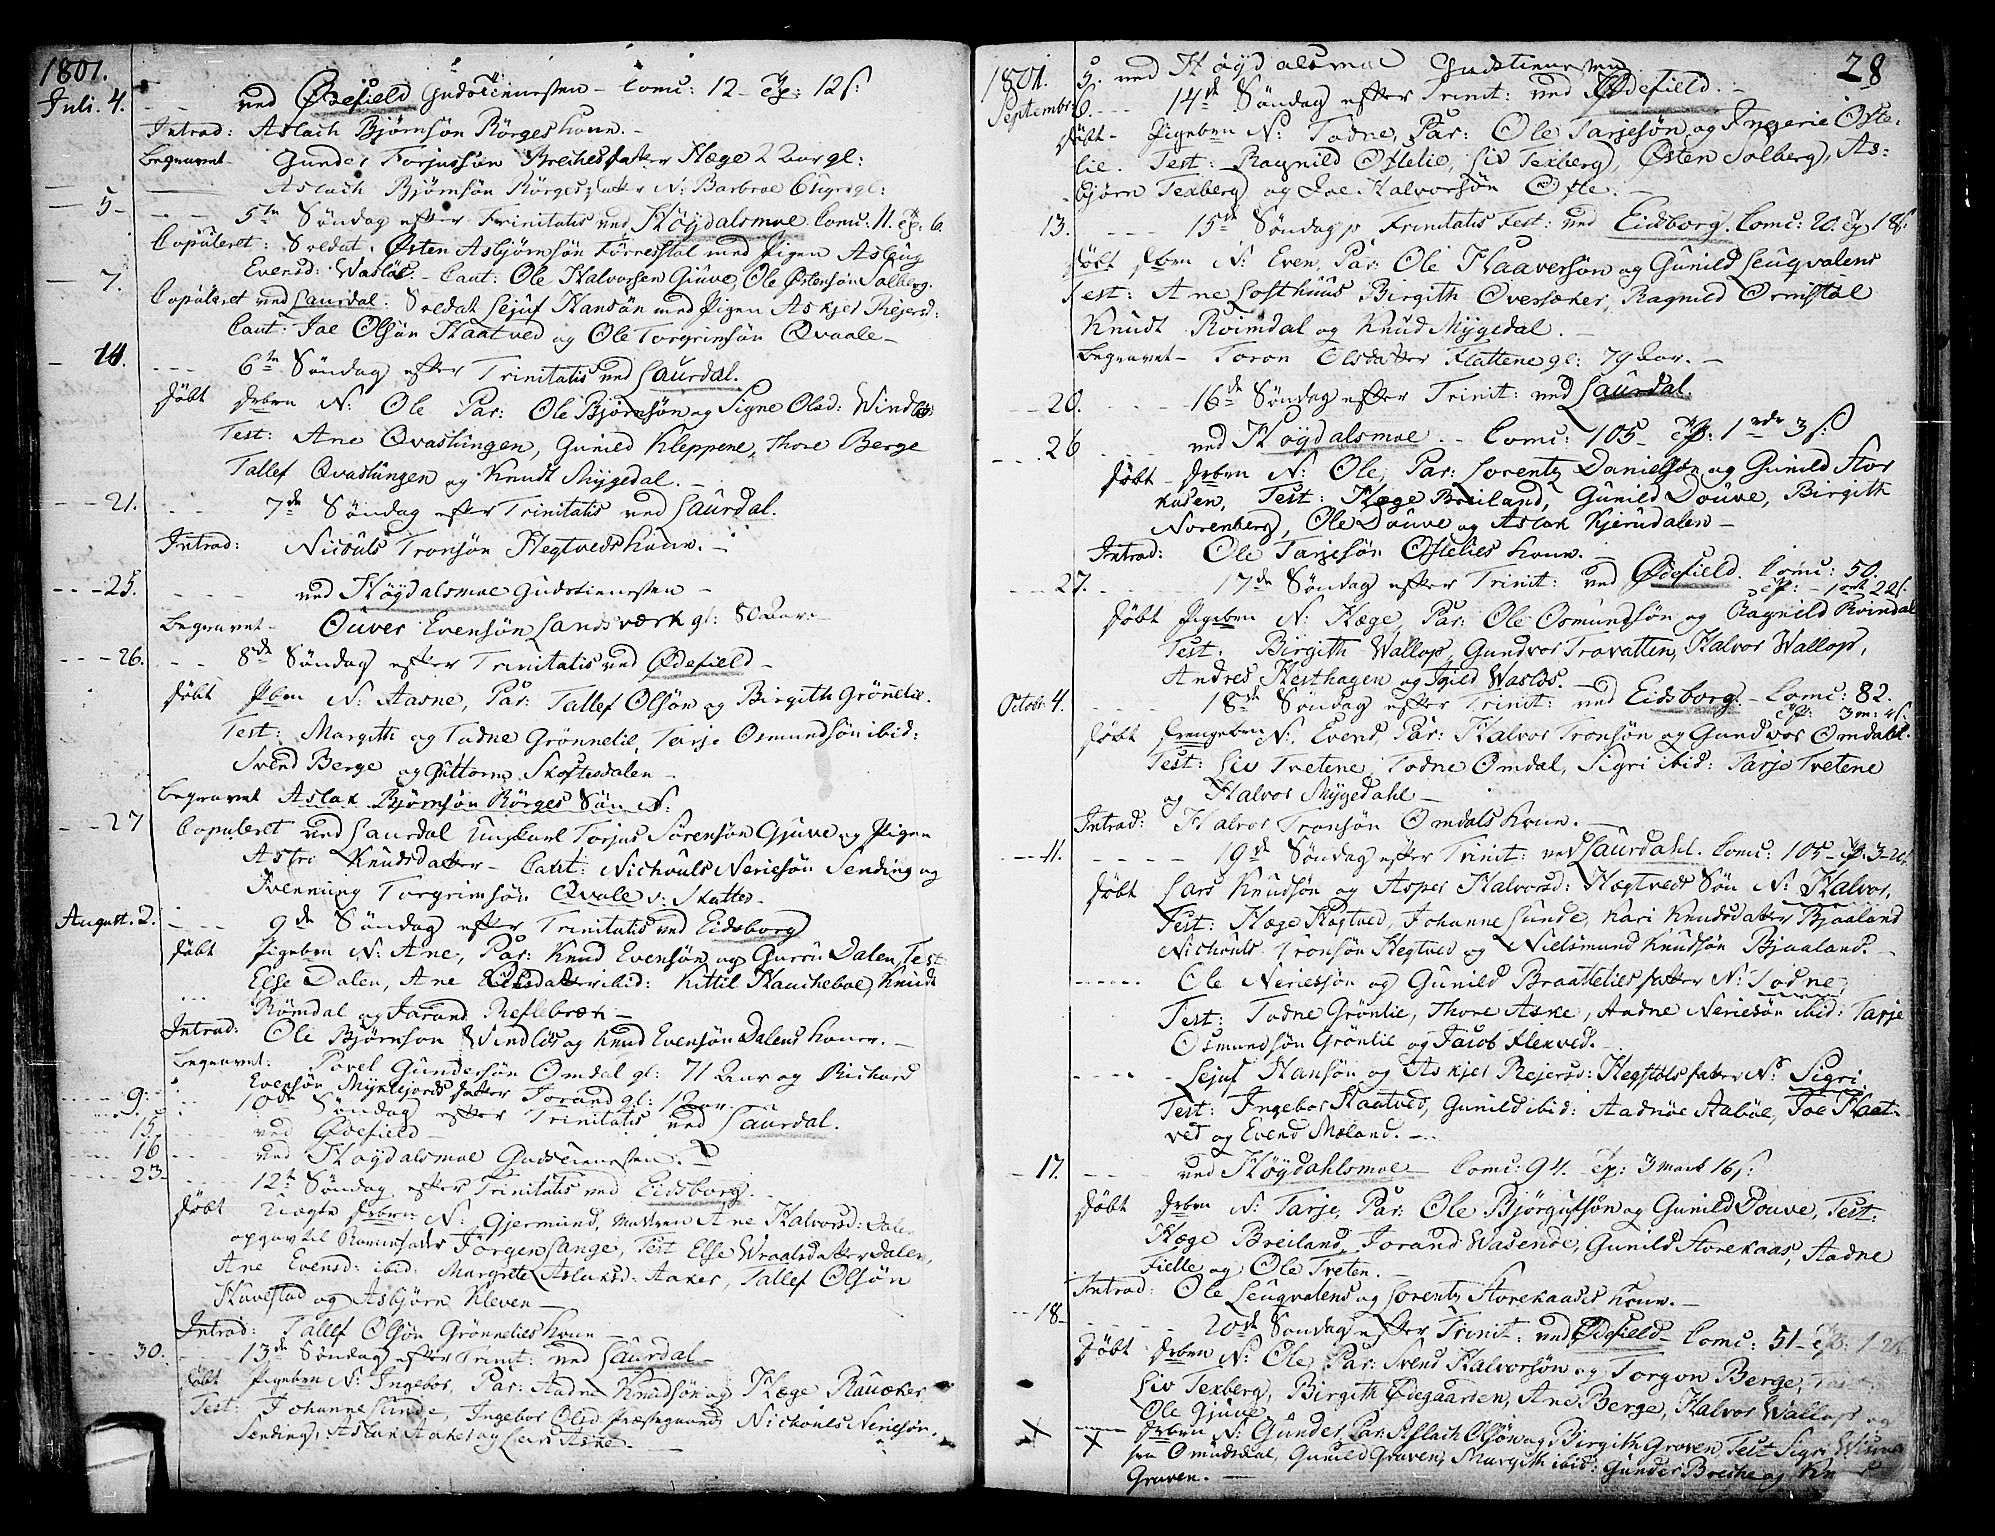 1801.
Juli. 4. ved Ødefield Gudstienesten - Comu: 12 - Op: 12 s.
Introd: Aslach Bjørnsøn Rörges kone. -
Begravet - Gunder Torjussøn Breches datter Hæge 2 Aar gl:
Aslach Bjørnsøn Rörges datter N: Barbroe 6 uger gl:
5 - 5te Søndag efter Trinitatis ved Høydalsmoe Comu: 11. Op: 6.
Copuleret: Soldat Østen Asbjørnsøn Førrestøl med Pigen Aslaug
Evensd: Wasløs. - Caut: Ole Halvorsen Giuve, Ole Østensøn Solberg.
7. Copuleret ved Laurdal: Soldat Lejuf Hansøn med Pigen Askjer Rejersd:
Caut: Joe Olsøn Haatved og Ole Torgrimsøn Qvaale -
14. 6te Søndag efter Trinitatis ved Laurdal.
døbt Drbrn N: Ole Par: Ole Bjørnsøn og Signe Olsd: Windløs
Test: Ane Qvaslungen, Gunild Kleppene, Thore Berge
Tallef Qvaslungen og Knudt Mygedal. -
21. 7de Søndag efter Trinitatis ved Laurdal.
Introd: Nicouls Tronsøn Hegtveds kone. -
25. ved Høydalsmoe Gudstienesten -
Begravet - Ouver Evensøn Landsverk gl: 80 Aar. -
26. 8de Søndag efter Trinitatis ved Ødefield -
døbt Pbrn N: Aasne, Par: Tallef Olsøn og Birgith Grønnelie.
Test: Margith og Todne Grönnelie, Tarje Osmundsøn ibid:
Svend Berge og Guttorm Skoftedalen -
Begravet Aslak Bjørnsøn Rörges Søn N:
27 Copuleret ved Laurdal Ungkarl Torjus Sørensøn Gjuve og Pigen
Astri Knudsdatter - Caut: Nichouls Neriesøn Sending og
Svenning Torgrimsøn Qvale v: Skatted.
August. 2. 9de Søndag efter Trinitatis ved Eidsborg
døbt Pigebrn N: Ane, Par: Knud Evensøn og Guroe Dalen, Test
Else Dalen, Ane Olsdatter ibid: Kittil Haucheboe, Knudt
Römdal og Jarand Neslebræk -
Introd: Ole Bjørnson Windløs og Knud Evensøn Dalens koner. -
Begravet: Povel Gundersøn Omdal gl: 71 Aar og Richard
Evensøn Myklejords datter Jorand gl: 1 Aar. -
9. 10de Søndag efter Trinitatis ved Laurdal.
15. ved Ødefield -
16 ved Høydalsmoe Gudstienesten. -
23 - 12te Søndag efter Trinitatis ved Eidsborg.
døbt Uægte Drbrn N: Gjermund, Moderen Ane Halvorsd: Dalen
opgav til Barnefader Jörgen Lange, Test Else Wraalsdatter Dalen,
Ane Evensd: ibid: Margrete Aslaksd: Aaker, Tallef Olsøn
Huvestad og Asbjørn Kleven -
Introd: Tallef Olsøn Grönnelies kone -
30. 13de Søndag efter Trinit: ved Laurdal -
døbt Pigebrn N: Ingebor, Par: Aadne Knudsøn og Hæge Rauaker
Test: Johanne Lunde, Ingebor Olsd Præstegaard Nichouls Neriesøn
Sending, Aslak Aaker og Lars Aske. -
28
1801. 5. ved Høydalsmoe Gudstienesten
Septembr: 6. 14de Søndag efter Trinit: ved Ødefield. -
døbt - Pigebrn N: Todne, Par: Ole Tarjesøn og Ingerie Ofte:
lie. Test: Ragnild Oftelie, Liv Texberg, Østen Solberg, As:
bjørn Texberg og Joe Halvorsøn Ofte. -
13. 15de Søndag p Trinitatis Fest: ved Eidborg. Comu: 20. Op 18 s.
døbt Drbrn N: Even, Par: Ole Haaversøn og Gunild Leuqvalens
Test: Ane Losthuus Birgith Oversaker, Ragnild Ormstøl
Knudt Roimdal og Knud Mygedal. -
Begravet - Toron Olsdatter Flattene gl: 79 Aar. -
20. 16de Søndag efter Trinit: ved Laurdal.
26 ved Høydalsmoe. - Comu: 105 - Op: 1 rdr 3 s.
døbt - Drbrn N: Ole, Par: Lorentz Danielsøn og Gunild Stor
kasen, Test: Hæge Breiland, Gunild Douve, Birgith
Norenberg, Ole Douve og Aslak Kjerudalen -
Introd: Ole Tarjesøn Oftelies kone. -
27. 17de Søndag efter Trinit: ved Ødefield. Comu: 50.
Op: - 1 ort 22 s.
døbt Pigebrn N: Hæge, Par: Ole Osmundsøn og Ragnild Roindal
Test: Birgith Wallop, Gundvor Trovatten, Halvor Wallop,
Andres Hesthagen og Targild Wasløs.
Octobr: 4. 18de Søndag efter Trinit: ved Eidsborg. - Comu: 82.
døbt Drengebrn N: Evend, Par: Halvor Tronsøn og Gundvor Omdahl.
Test: Liv Tvetene, Todne Omdal, Sigri ibid: Tarje Tvetene
og Halvor Mygedahl -
Introd: Halvor Tronsøn Omdals kone. -
11. 19de Søndag efter Trinit: ved Laurdahl. Comu: 105 - Op: 3 -
døbt Lars Knudsøn og Asper Halvorsd: Hegtveds Søn N: Halvor,
Test: Hæge Hegtved, Johanne Lunde, Kari Knudsdatter Bjaaland
Nichouls Tronsøn Hegtved og Nielsmund Knudsøn Bjaaland. -
Ole Neriesøn og Gunild Braattelies datter N: Todne
Test: Todne Grönlie, Thore Aske, Aadne Neriesøn ibid: Tarje
Osmundsøn Grönlie og Jacob Flekved. -
Lejuf Hansøn og Askjer Rejersd: Hegstøls datter N: Sigri
Test: Ingebor Haatved, Gunild ibid: Aadnøe Aabøe, Joe Haat-
ved og Evend Moland. -
17. ved Høydahlsmoe - Comu: 94. Op: 3 mark 16 s.
døbt Drbrn N: Tarje, Par: Ole Bjørgufsøn og Gunild Douve, Test:
Hæge Breiland, Jorand Wasende, Gunild Storekaas, Aadne
Fielle og Ole Tveten. -
Introd: Ole Leuqvalens og Lorentz Storekaases kone. -
18 - 20de Søndag efter Trinit: ved Ødefield - Comu: 51 - Op: 1
døbt Drbrn N: Ole, Par: Svend Halvorsøn og Torgon Berge, Test:
Liv Texberg, Birgith Ødegaarden, Ane Berge, Halvor Wallop og
Ole Gjuve
X X Drbrn N: Gunder, Par: Aslach Olsøn og Birgith Groven, Test Sigri
fra Omundsdal, Gunild Groven, Margith ibid: Gunder Breche og
Groven. -